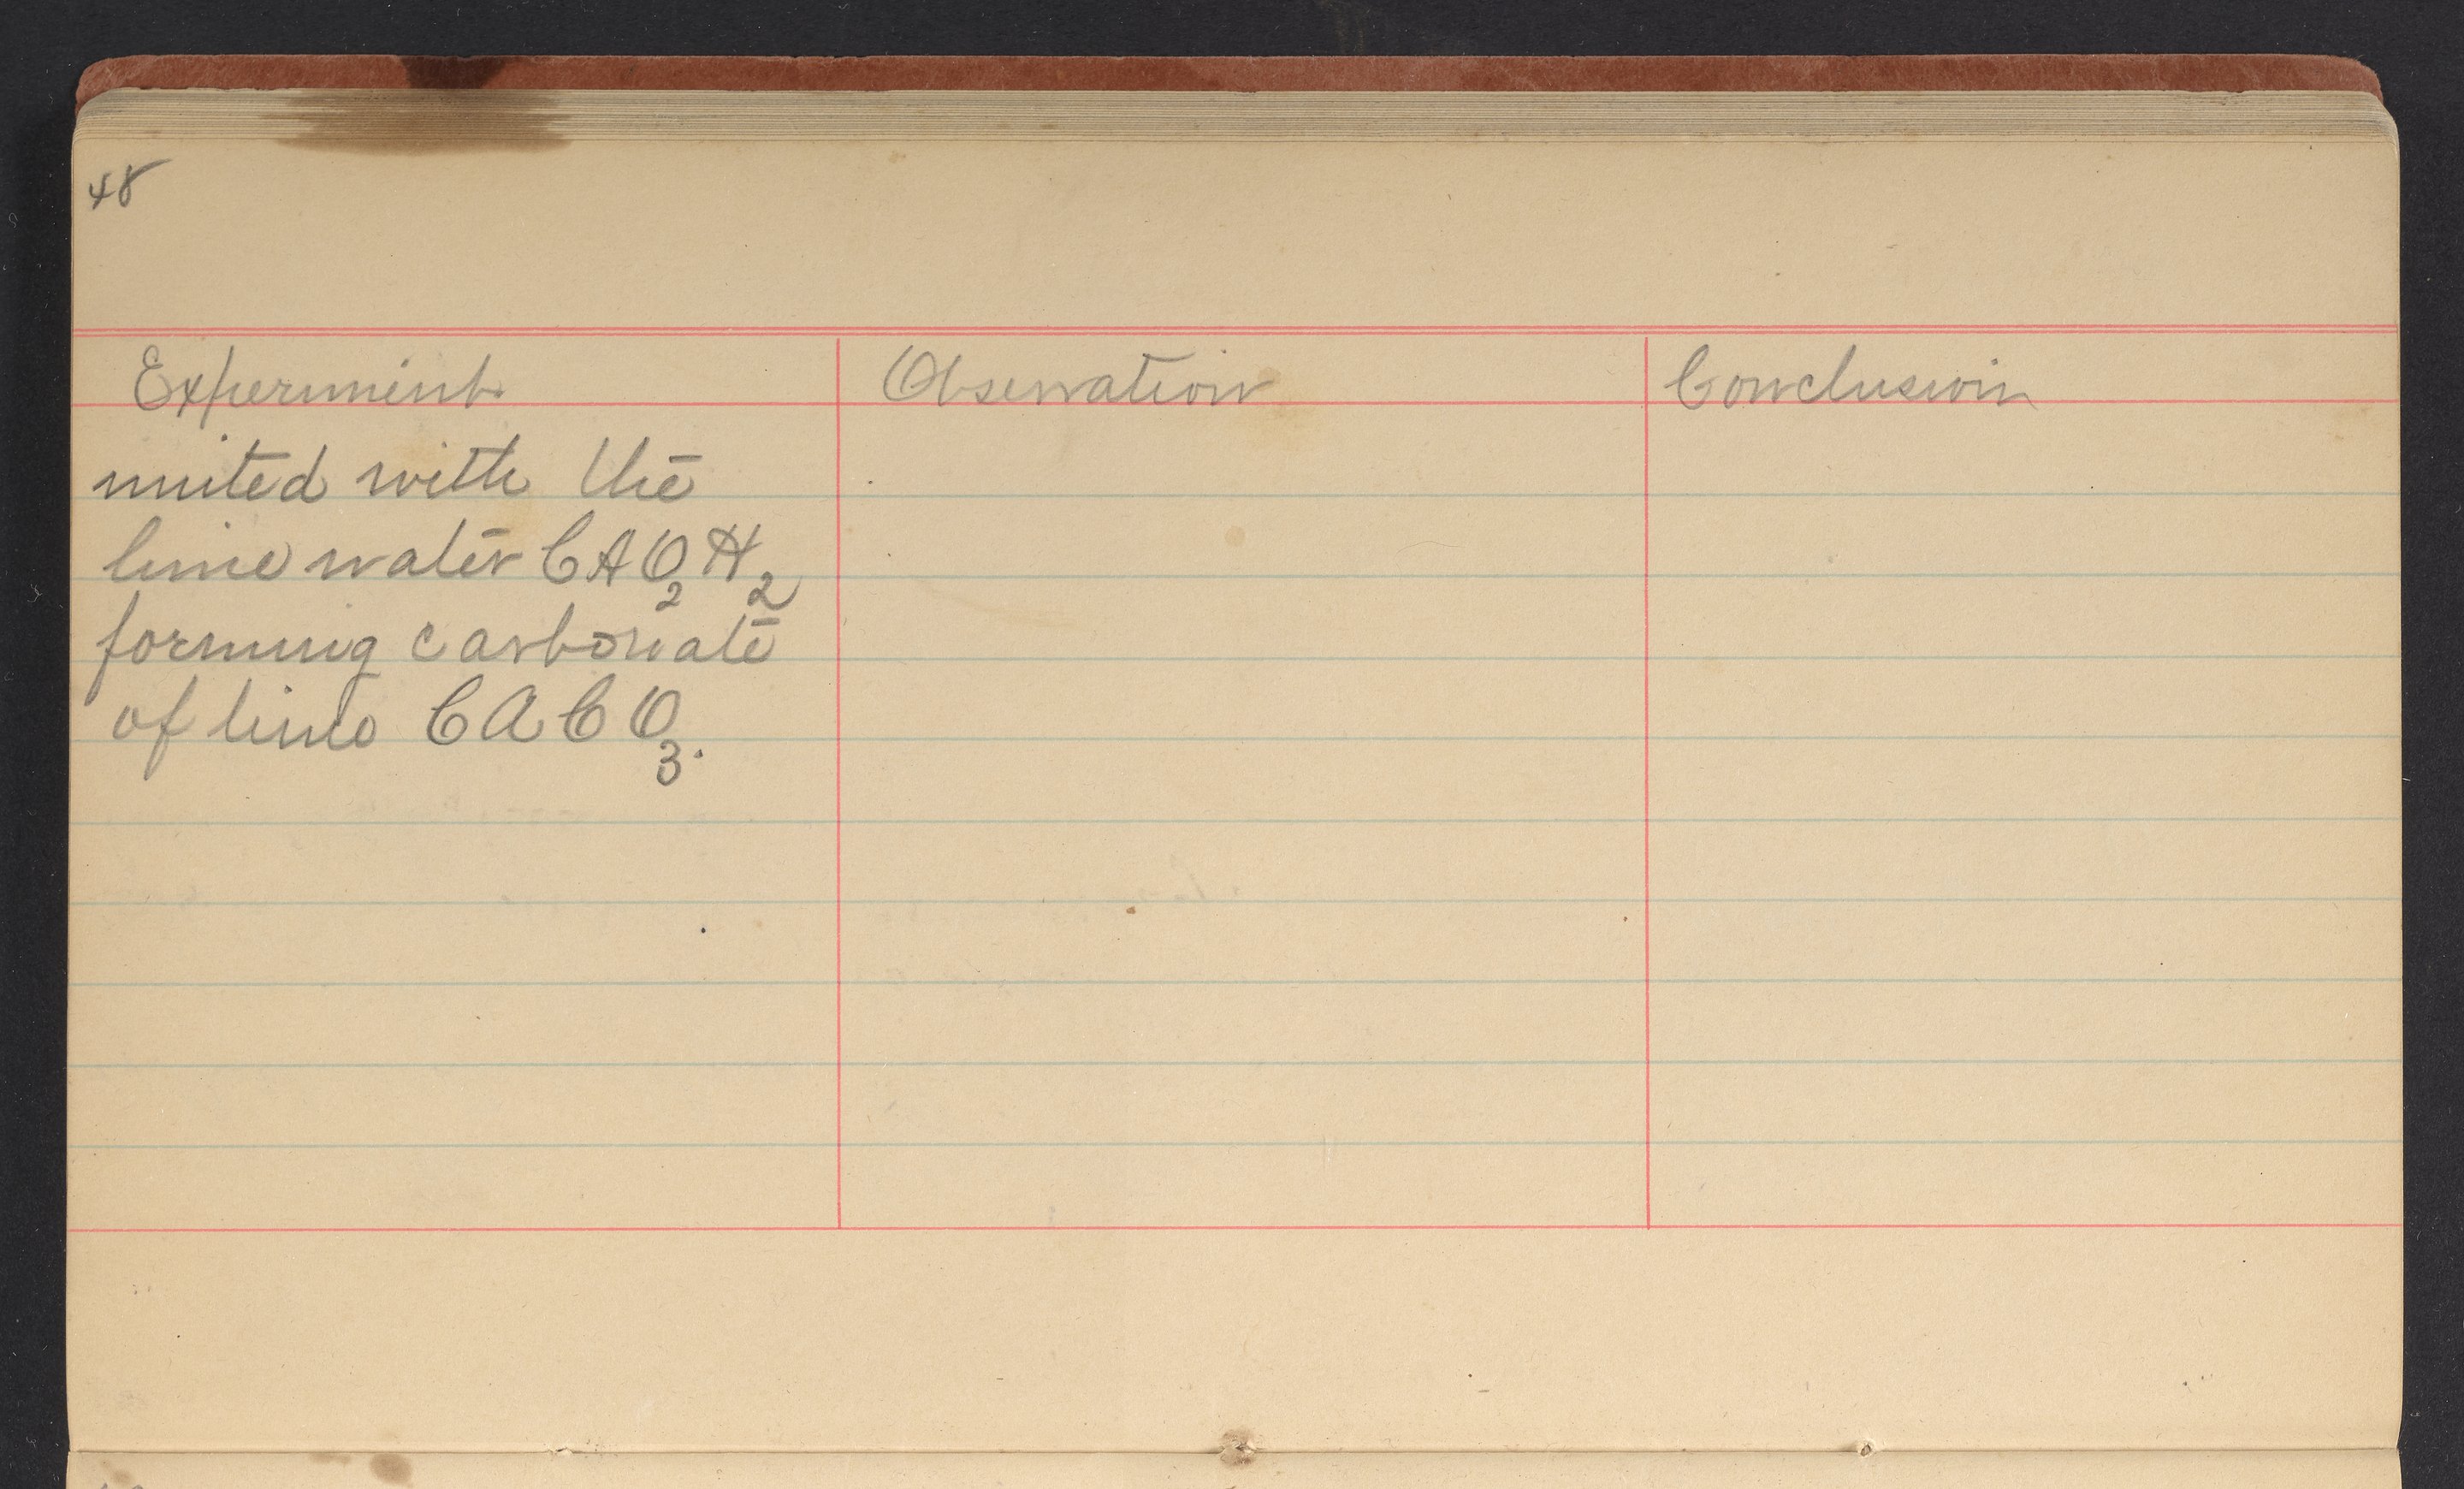 48
Experiment Observation Conclusion
united with the
lime water CAO₂H₂
forming carbonate
of lime CACO₃.